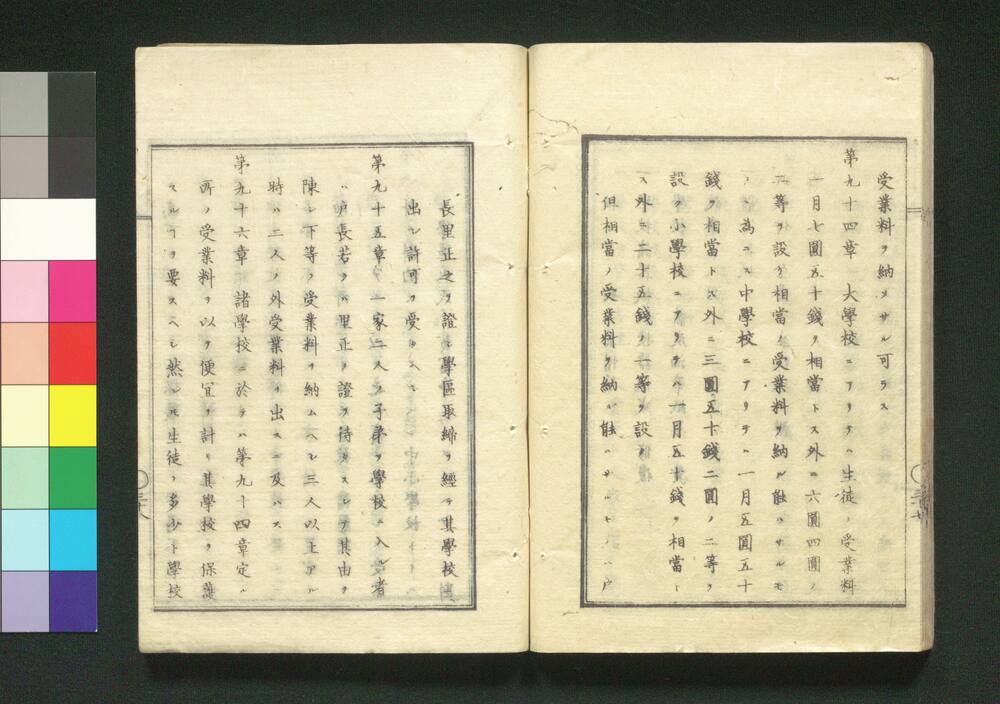 受業料ヲ納メサル可ラス
第九十四章 大學校ニアリテハ生徒ノ受業料
一月七圓五十錢ヲ相當トス外ニ六圓四圓ノ
二等ヲ設ケ相當ノ受業料ヲ納ル能ハサルモ
ノヽ為ニス中學校ニアリテハ一月五圓五十
錢ヲ相當トス外ニ三圓五十錢二圓ノ二等ヲ
設ク小學校ニアリテハ一月五十錢ヲ相當ト
ス外ニ二十五錢ノ一等ヲ設ク
但相當ノ受業料ヲ納ル能ハサルモノハ戸
長里正之ヲ證シ學區取締ヲ經テ其學校
出シ許可ヲ受
第九十五章 一家二人ノ子弟ヲ學校ニ入ル者
ハ戸長若クハ里正ノ證ヲ待 其由ヲ
陳シ下等ノ受業料ヲ納ムヘシ三人以上アル
時ハ二人ノ外受業料ヲ出スニ及ハス
第九十六章 諸學校ニ於テハ第九十四章定ル
所ノ受業料ヲ以テ便宜ヲ計リ其學校ヲ保護
スルヿヲ要スヘシ然レ𪜈生徒ノ多少ト學校
三十七
三十八